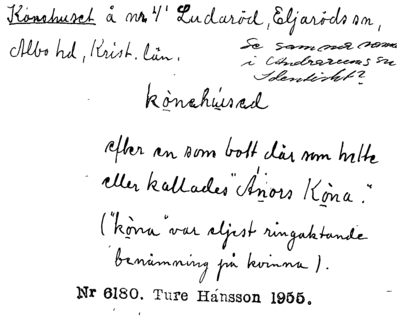 Könahuset å nr 4' Ludaröd, Eljaröds sn,
Albo hd, Krist. län.
Se samma namn
i Andrarums sn
Identiskt?
kònahúsed
efter en som bott där som hette
eller kallades "Ånors Kòna".
("kòna" var eljest ringaktande
benämning på kvinna).
Nr 6180. Ture Hansson 1955.